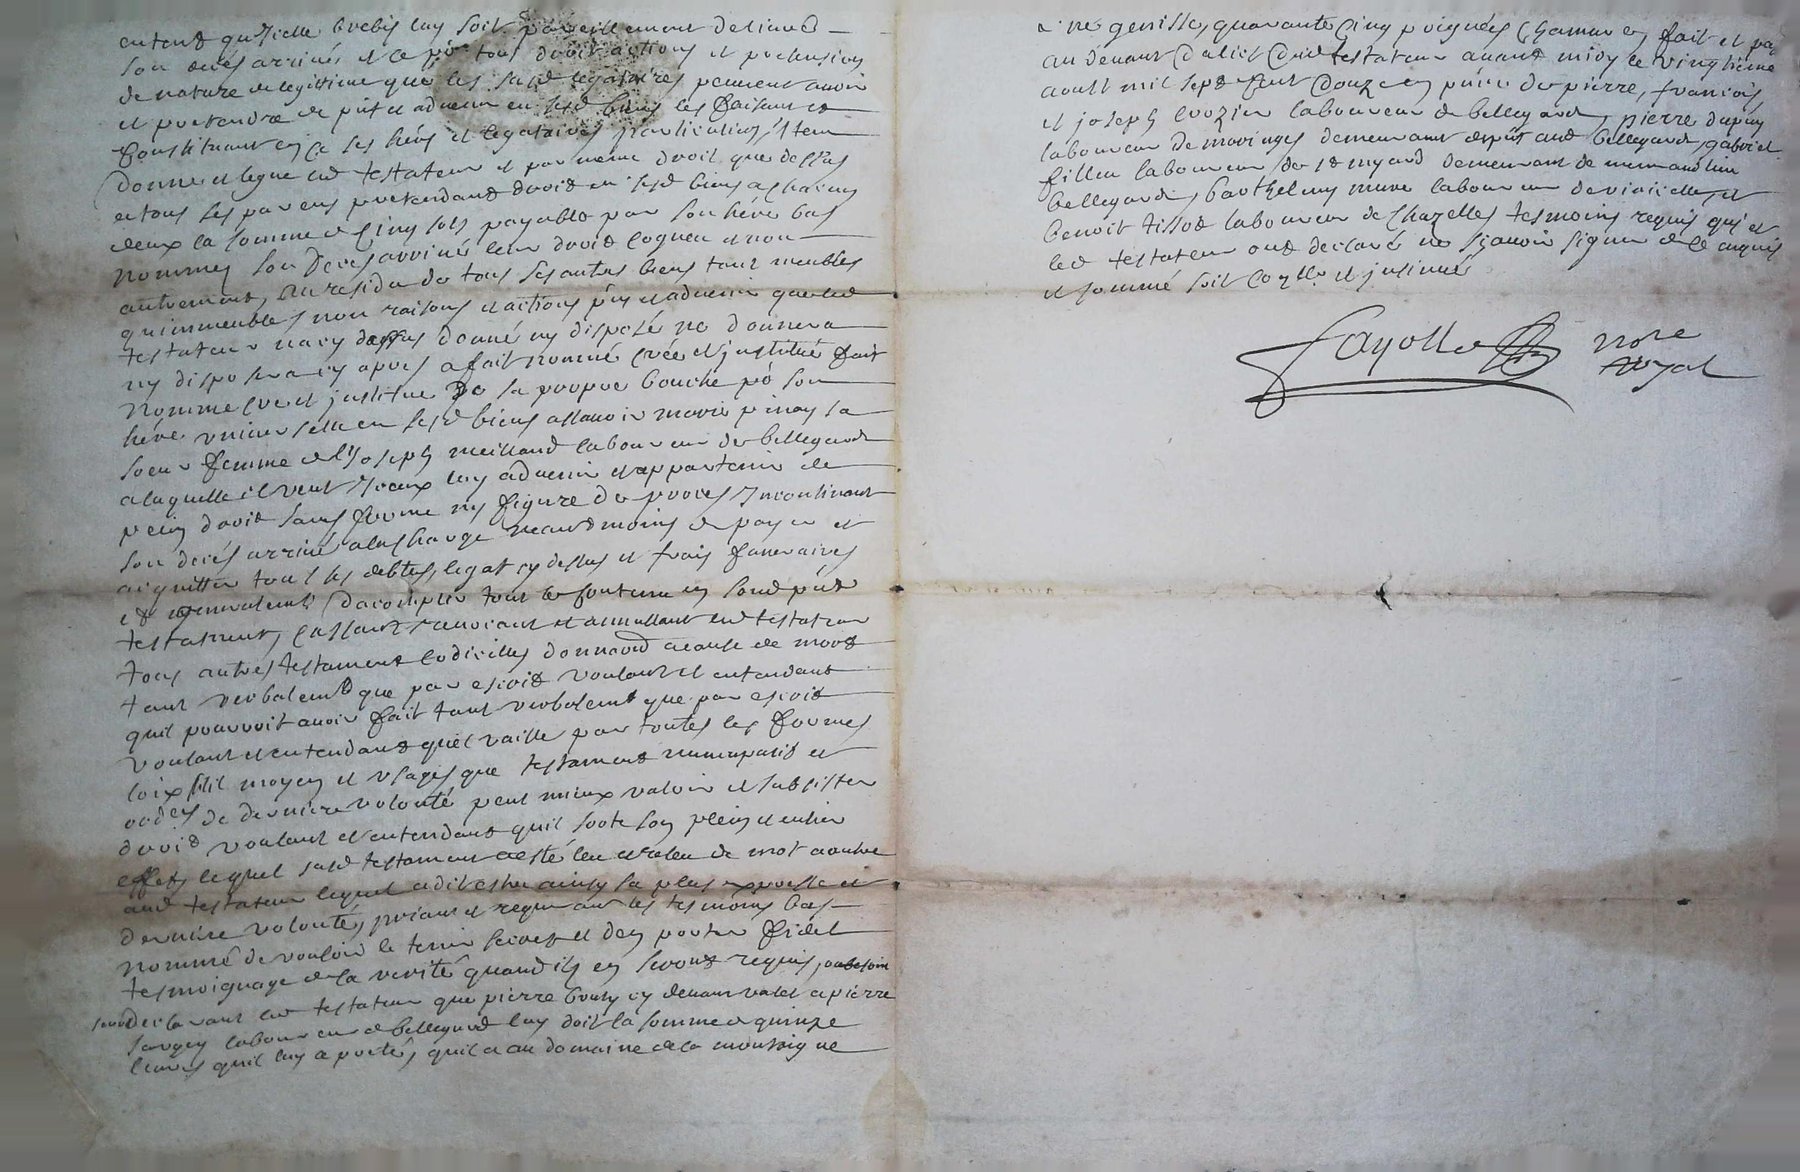 entend qu'Icelle brebis luy soit pareillement deliuré
son decés arriué et ce pō tous droits actions et pretensions
de nature de legitime que les susd legataires peuuent auoir
et pretendre de pnt et aduenir en sesd biens les faisant et
constituant en ce ses hērs et legataires particuliers, Item
donne et legue led testateur et par meme droit que dessus
a tous ses parens pretendans droit en sesd biens a chacun
deux la somme de Cinq sols payable par son hére bas
nommez son déces arriué leur droit cogneu et non
autrement, Au residu de tous ses autres biens tant meubles
qu'immeubles nom raisons et actions pns et aduenir que led
testateur n'a cy dessus donné ny disposé ne donnera
ny disposera cy apres a fait nommé créé et justitué fait
nomme cree et justitue De sa propre bouche pō son
hére vniuerselle en sesd biens assauoir marie pinay sa
soeur femme de Joseph meilland laboureur de bellegarde
a laquelle il veut Iceux luy aduenir et appartenir de
plein droit sans forme ny figure de proces Incontinant
son decés arriué a la charge neantmoins de payer et
acquitter tous ses debtes, legat cy dessus et frais funeraires
et d'acomplir tout le contenu en sond pnt
testament, Cassant reuocant et annullant led testateur
tous autres testament codicilles donnaōn a cause de mort
tant verbalemt que par escrit voulant et entendant
quil pourroit auoir fait tant verbalemt que par escrit
voulant et entendant quel vaille par toutes les formes
loix stil moyen et vsages que testament nuncupatif et
ordes de derniere volonté peut mieux valoir et subsister
droit voulant et entendant quil sorte son plein et entier
effet, lequel susd testament a esté leu et releu de mot a autre
aud testateur lequel a dit estre ainsy sa plus expresse et
derniere volonté, priant et requerant les tesmoins bas
nommé de vouloir le tenir secret et d'en porter fidel
tesmoignage de la verité quand ils en seront requis,
Declarant led testateur que pierre cy deuant valet a pierre
laboureur de bellegarde luy doit la somme de quinze
liures quil luy a preté, quil a au domaine de la montaigne
une genisse, quarante Cinq poignées Chamure, fait et pa
au deuant du lict dud testateur auant midy le vingtieme
aoust mil sept cent douze en pnce de pierre, francois
et joseph crozier laboureur de bellegarde, pierre dupuy
laboureur de maringes demeurant aud bellegarde, gabriel
filleu laboureur de demeurant de
bellegarde, barthelemy mure laboureur de viricelles, et
benoit tissot laboureur de Chazelles tesmoins requis qui et
led testateur ont declaré ne sçauoir signer de ce enquis
et sommé soit coñllé et jnsinué
fayolle nore
royal